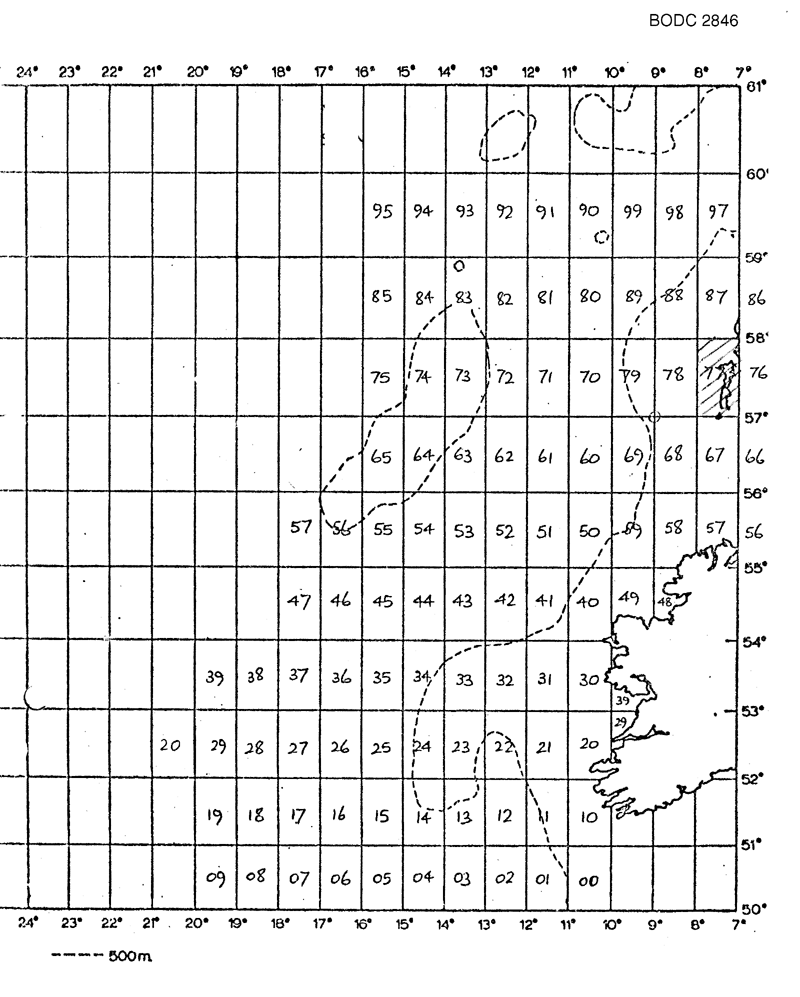 BODC 2846
24° 23° 22° 21° 20° 19° 18° 17° 16° 15° 14° 13° 12° 11° 10° 9° 8° 7°
61°
60°
95 94 93 92 91 90 99 98 97
59°
85 84 83 82 81 80 89 88 87 86
58°
75 74 73 72 71 70 79 78 77 76
57°
65 64 63 62 61 60 69 68 67 66
56°
57 56 55 54 53 52 51 50 59 58 57 56
55°
47 46 45 44 43 42 41 40 49 48
54°
39 38 37 36 35 34 33 32 31 30
39
53°
29
20 29 28 27 26 25 24 23 22 21 20
52°
19 18 17 16 15 14 13 12 11 10
51°
09 08 07 06 05 04 03 02 01 00
50°
24° 23° 22° 21° 20° 19° 18° 17° 16° 15° 14° 13° 12° 11° 10° 9° 8° 7°
---- 500m